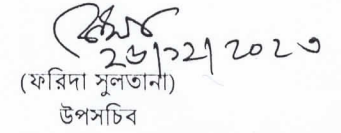 ২৬/১২/২০২৩
(ফরিদা সুলতানা)
উপসচিব